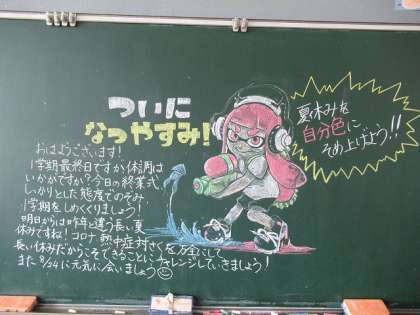 ついに
なつやすみ!
夏休みを
自分色に
そめ上げよう!!
おはようございます!
1学期最終日ですが体調は
いかがですか?今日の終業式
しっかりとした態度でのぞみ
1学期をしめくくりましょう!
明日からは昨年と違う長い夏
休みですね!コロナ 熱中症対さくを万全にして
長い休みだからこそできることにチャレンジしていきましょう!
また 8/24に元気に会いましょう